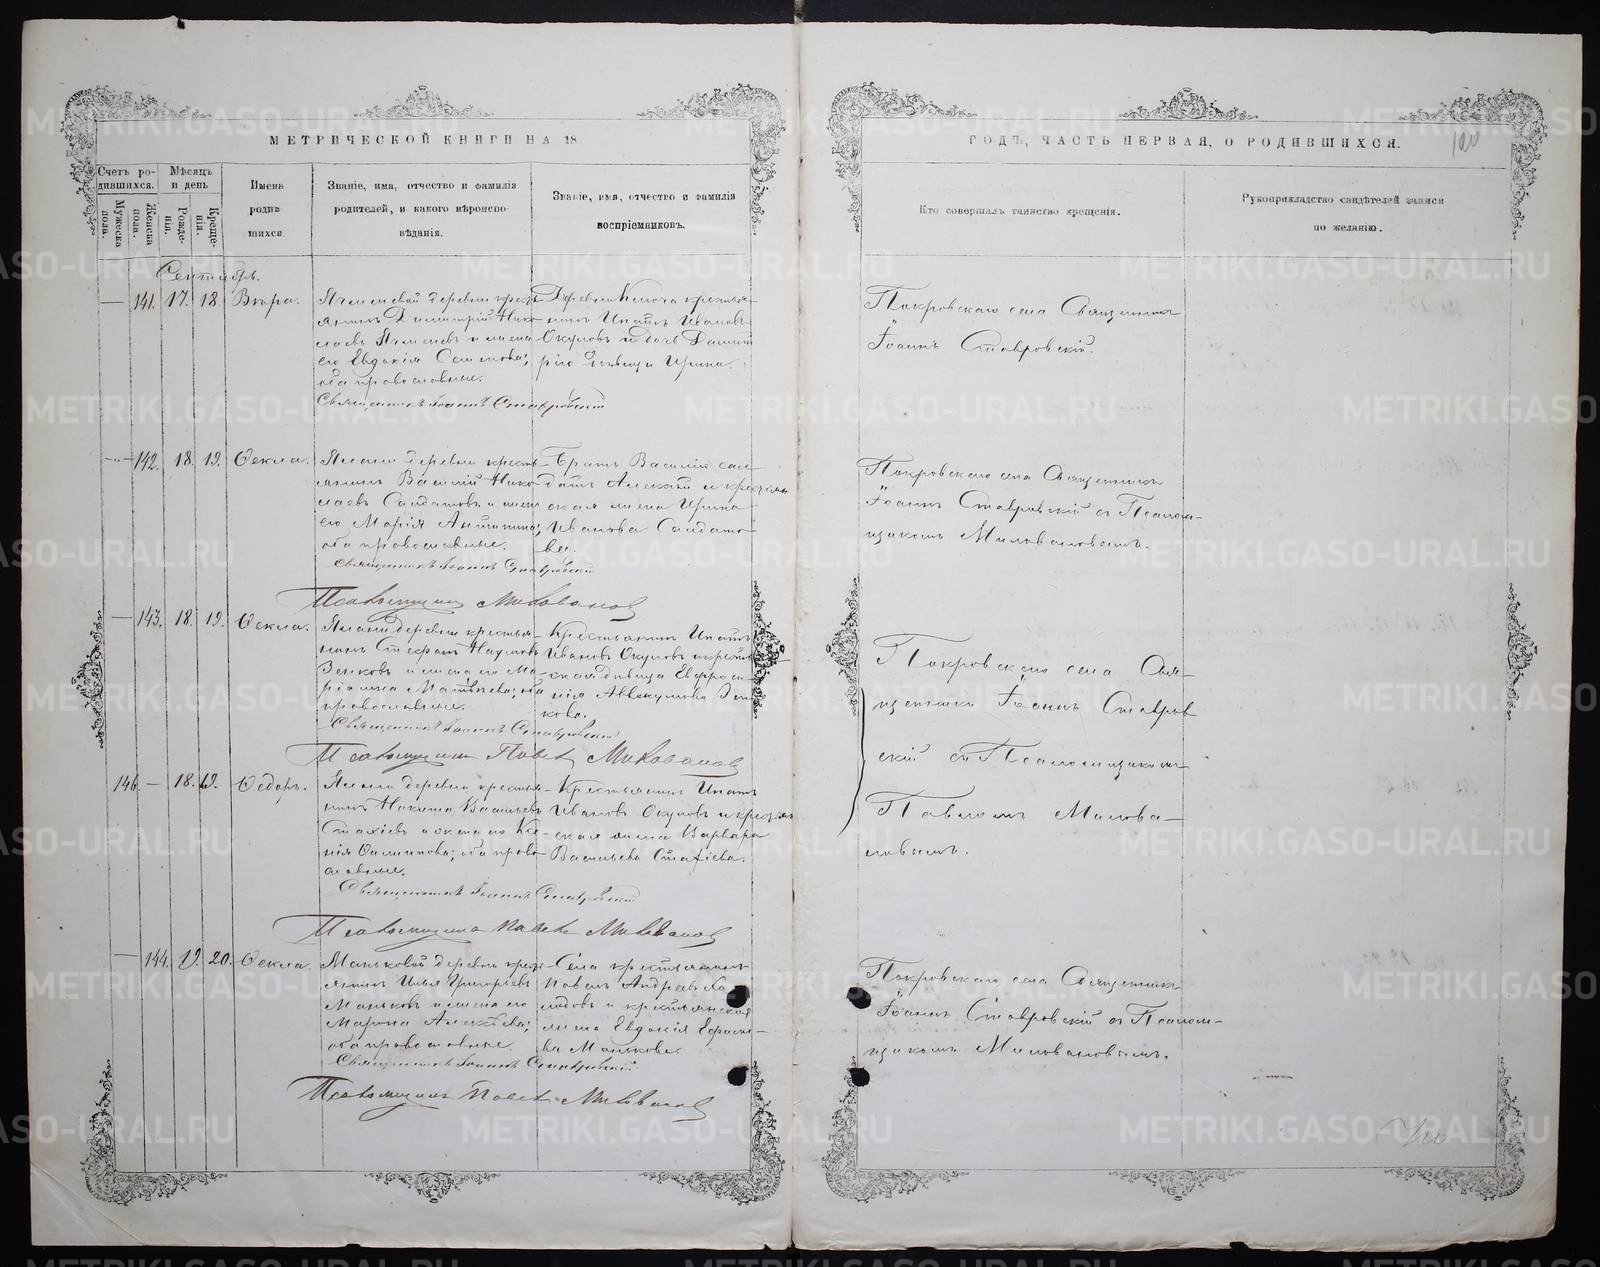 МЕТРИЧЕСКОЙ КНИГИ НА 18
ГОДЪ, ЧАСТЬ ПЕРВАЯ, О РОДИВШИХСЯ.
Счетъ родившихся.
Мужеска пола.
Женска пола.
Мѣсяцъ и день
Рожденія.
Крещенія.
Имена
родившихся
Званіе, имя, отчество и фамилія
родителей, и какого вѣроисповѣданія.
Званіе, имя, отчество и фамилія
воспріемниковъ.
Кто совершалъ таинство крещенія.
Рукоприкладство свидѣтелей записи
по желанію.
Сентябрь.
141. 17. 18. Вѣра.
деревни
Димитрій Нико-
лаевъ и жена
его Евдокія
оба православные.
Священникъ Іоаннъ Ставровскій
Ипатъ Ивановъ
Окуловъ
Ирина.
Покровскаго села Священникъ
Іоаннъ Ставровскій.
142. 18. 19. Ѳекла.
деревни кресть-
янинъ Василій Нико-
лаевъ Солдатовъ и жена
его Марія
оба православные.
Священникъ Іоаннъ Ставровскій
Псаломщикъ Миловановъ
Братъ Василія сол-
датъ Алексѣй и крестьян-
ская жена Ирина
Иванова Солдато-
ва.
Покровскаго села Священникъ
Іоаннъ Ставровскій съ Псалом-
щикомъ Миловановымъ.
143. 18. 19. Ѳекла.
деревни крестья-
нинъ Стефанъ Наумовъ
Зенковъ и жена его Ма-
оба
православные.
Священникъ Іоаннъ Ставровскій
Псаломщикъ Павелъ Миловановъ
Крестьянинъ Ипатъ
Ивановъ Окуловъ и крестьян-
ская дѣвица Евфроси-
нія Аввакумова Зен-
кова.
Покровскаго села Свя-
щенникъ Іоаннъ Ставров-
скій съ Псаломщикомъ
Павломъ Милова-
новымъ.
146. 18. 19. Ѳедоръ.
деревни крестья-
нинъ Никита Васильевъ
Стахіевъ и жена его Ксе-
нія оба право-
славные.
Священникъ Іоаннъ Ставровскій
Псаломщикъ Павелъ Миловановъ
Крестьянинъ Ипатъ
Ивановъ Окуловъ и крестьян-
ская жена Варвара
Васильева Стахіева.
144. 19. 20. Ѳекла.
Маньковой деревни крест-
янинъ Илья Григорьевъ
Маньковъ и жена его
Марина Алексѣева;
оба православные.
Священникъ Іоаннъ Ставровскій
Псаломщикъ Павелъ Миловановъ
Села крестьянинъ
Павелъ Андреевъ
и крестьянская
жена Евдокія
ва Манькова.
Покровскаго села Священникъ
Іоаннъ Ставровскій съ Псалом-
щикомъ Миловановымъ.
METRIKI.GASO-URAL.RU